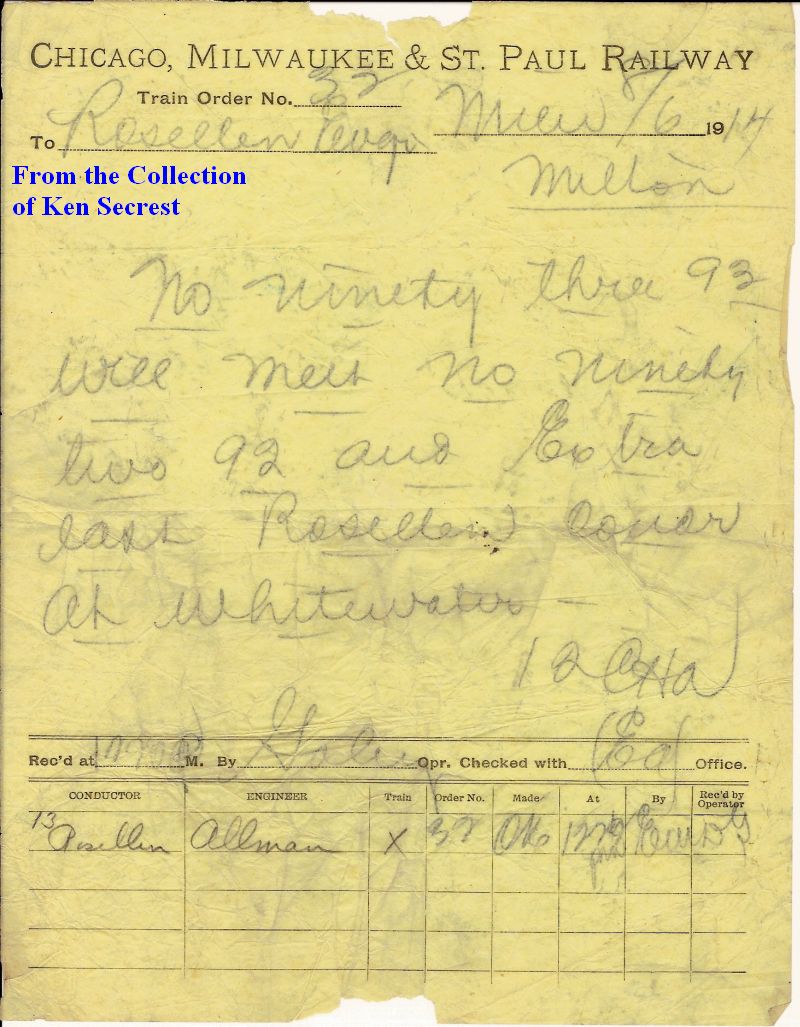 CHICAGO, MILWAUKEE & ST. PAUL RAILWAY
Train Order No. 32
To Rosellen 8/6 1914
From the Collection
of Ken Secrest
Milton
No ninety three 93
will meet No ninety
two 92 and Extra
east Rosellen Condr
At Whitewater
12
Rec'd at M. By Opr. Checked with Office.
CONDUCTOR ENGINEER Train Order No. Made At By Rec'd by Operator
13 Rosellen Allman X 32 pm